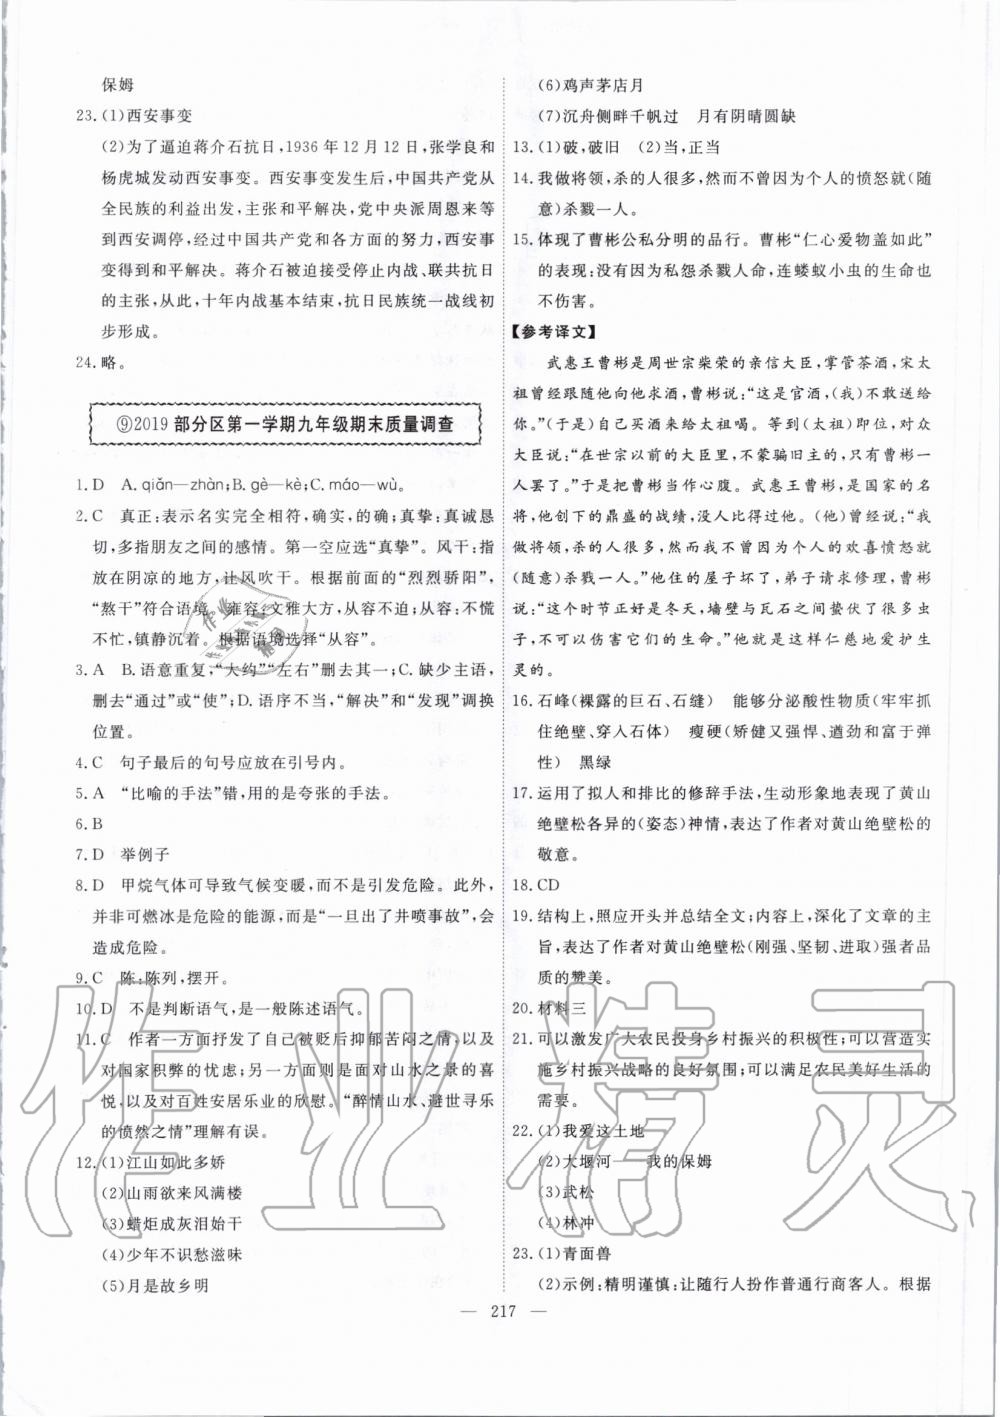 保姆
23.(1)西安事变
(2)为了逼迫蒋介石抗日,1936 年 12 月 12 日,张学良和
杨虎城发动西安事变。西安事变发生后,中国共产党从
全民族的利益出发,主张和平解决,党中央派周恩来等
到西安调停,经过中国共产党和各方面的努力,西安事
变得到和平解决。蒋介石被迫接受停止内战、联共抗日
的主张,从此,十年内战基本结束,抗日民族统一战线初
步形成。
24.略。
⑨2019 部分区第一学期九年级期末质量调查
1.D　A.qiǎn—zhàn;B.gè—kè;C.máo—wù。
2.C　真正:表示名实完全相符,确实,的确;真挚:真诚恳
切,多指朋友之间的感情。第一空应选“真挚”。风干:指
放在阴凉的地方,让风吹干。根据前面的“烈烈骄阳”,
“熬干”符合语境。雍容:文雅大方,从容不迫;从容:不慌
不忙,镇静沉着。根据语境选择“从容”。
3.A　B.语意重复,“大约”“左右”删去其一;C.缺少主语,
删去“通过”或“使”;D.语序不当,“解决”和“发现”调换
位置。
4.C　句子最后的句号应放在引号内。
5.A　“比喻的手法”错,用的是夸张的手法。
6.B
7.D　举例子
8.D　甲烷气体可导致气候变暖,而不是引发危险。此外,
并非可燃冰是危险的能源,而是“一旦出了井喷事故”,会
造成危险。
9.C　陈:陈列,摆开。
10.D　不是判断语气,是一般陈述语气。
11.C　作者一方面抒发了自己被贬后抑郁苦闷之情,以及
对国家积弊的忧虑;另一方面则是面对山水之景的喜
悦,以及对百姓安居乐业的欣慰。“醉情山水、避世寻乐
的愤然之情”理解有误。
12.(1)江山如此多娇
(2)山雨欲来风满楼
(3)蜡炬成灰泪始干
(4)少年不识愁滋味
(5)月是故乡明
(6)鸡声茅店月
(7)沉舟侧畔千帆过　月有阴晴圆缺
13.(1)破,破旧　(2)当,正当
14.我做将领,杀的人很多,然而不曾因为个人的愤怒就(随
意)杀戮一人。
15.体现了曹彬公私分明的品行。曹彬“仁心爱物盖如此”
的表现:没有因为私怨杀戮人命,连蝼蚁小虫的生命也
不伤害。
【参考译文】
武惠王曹彬是周世宗柴荣的亲信大臣,掌管茶酒,宋太
祖曾经跟随他向他求酒,曹彬说:“这是官酒,(我)不敢送给
你。”(于是)自己买酒来给太祖喝。等到(太祖)即位,对众
大臣说:“在世宗以前的大臣里,不蒙骗旧主的,只有曹彬一
人罢了。”于是把曹彬当作心腹。武惠王曹彬,是国家的名
将,他创下的鼎盛的战绩,没人比得过他。(他)曾经说:“我
做将领,杀的人很多,然而我不曾因为个人的欢喜愤怒就
(随意)杀戮一人。”他住的屋子坏了,弟子请求修理,曹彬
说:“这个时节正好是冬天,墙壁与瓦石之间蛰伏了很多虫
子,不可以伤害它们的生命。”他就是这样仁慈地爱护生
灵的。
16.石峰(裸露的巨石、石缝)　能够分泌酸性物质(牢牢抓
住绝壁、穿入石体)　瘦硬(矫健又强悍、遒劲和富于弹
性)　黑绿
17.运用了拟人和排比的修辞手法,生动形象地表现了黄山
绝壁松各异的(姿态)神情,表达了作者对黄山绝壁松的
敬意。
18.CD
19.结构上,照应开头并总结全文;内容上,深化了文章的主
旨,表达了作者对黄山绝壁松(刚强、坚韧、进取)强者品
质的赞美。
20.材料三
21.可以激发广大农民投身乡村振兴的积极性;可以营造实
施乡村振兴战略的良好氛围;可以满足农民美好生活的
需要。
22.(1)我爱这土地
(2)大堰河——我的保姆
(3)武松
(4)林冲
23.(1)青面兽
(2)示例:精明谨慎:让随行人扮作普通行商客人。根据
— 217 —
作业精灵